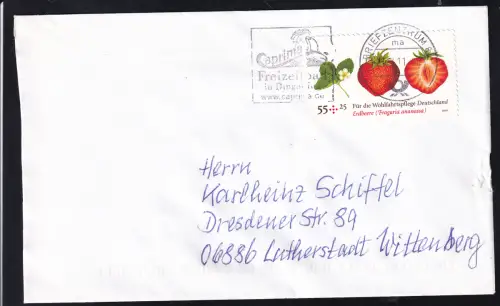 Caprima
Freizeitbad
in Dingolfing
www.caprima.de
BRIEFZENTRUM
ma
11
55+25 Für die Wohlfahrtspflege Deutschland
Erdbeere (Fragaria ananassa)
Herrn
Karlheinz Schiffel
Dresdener Str. 89
06886 Lutherstadt Wittenberg